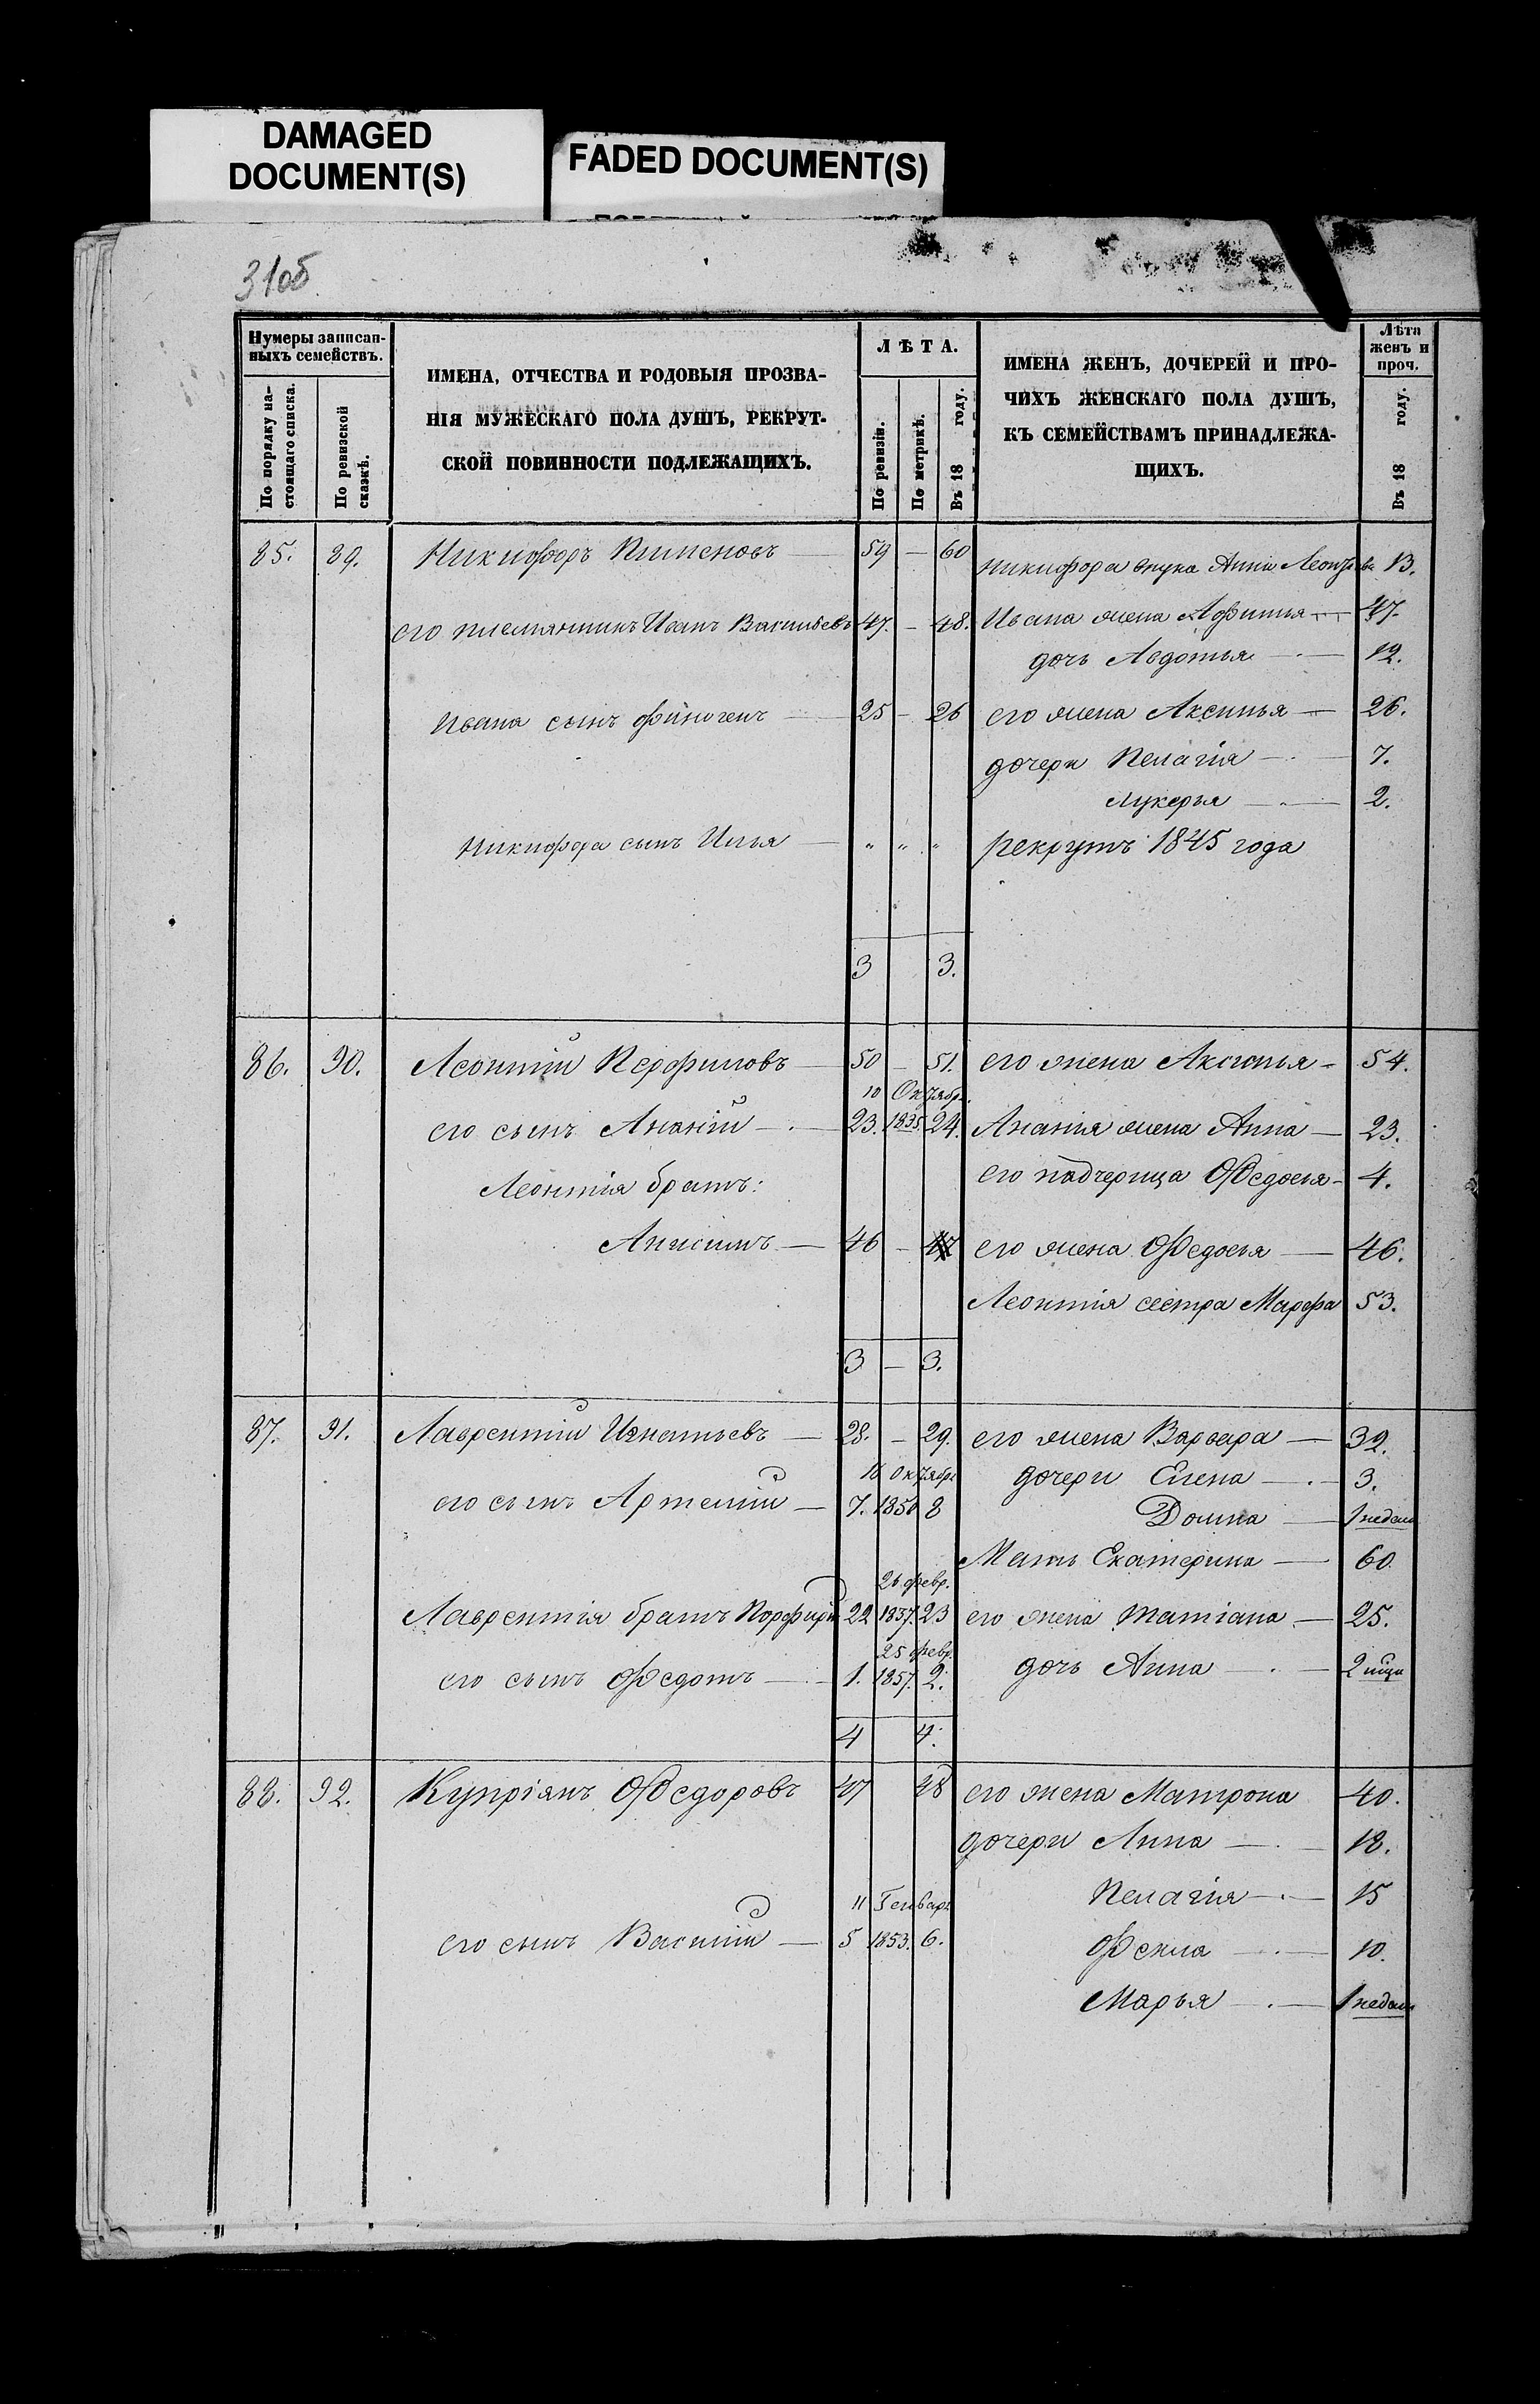 DAMAGED
DOCUMENT(S)
FADED DOCUMENT(S)
31об
Нумеры записан-
ныхъ семействъ.
По порядку на-
стоящаго списка.
По ревизской
сказкѣ.
ИМЕНА, ОТЧЕСТВА И РОДОВЫЯ ПРОЗВА-
НІЯ МУЖЕСКАГО ПОЛА ДУШЪ, РЕКРУТ-
СКОЙ ПОВИННОСТИ ПОДЛЕЖАЩИХЪ.
ЛѢТА.
По ревизіи.
По метрикѣ.
Въ 18 году.
ИМЕНА ЖЕНЪ, ДОЧЕРЕЙ И ПРО-
ЧИХЪ ЖЕНСКАГО ПОЛА ДУШЪ,
КЪ СЕМЕЙСТВАМЪ ПРИНАДЛЕЖА-
ЩИХЪ.
Лѣта
женъ и
проч.
Въ 18 году.
85. 89. Никифоръ Пименовъ — 59 — 60 Никифора внука Анна 13.
его племянникъ Иванъ Васильевъ 47. — 48. Ивана жена Афимья — 47.
дочь Авдотья — 12.
Ивана сынъ Финогенъ — 25 — 26 его жена Аксинья — 26.
дочери Пелагія — 7.
Лукерья — 2.
Никифора сынъ Илья — " " " рекрутъ 1845 года
3 3.
86. 90. Леонтій Перфиловъ — 50 — 51. его жена Аксинья — 54.
10 Октября
его сынъ Ананій — 23. 1835. 24. Ананія жена Анна — 23.
Леонтія братъ: его падчерица Федосья — 4.
Анисимъ — 46 — 47 его жена Федосья — 46.
Леонтія сестра Марфа 53.
3 — 3.
87. 91. Лаврентій Игнатьевъ — 28. — 29. его жена Варвара — 32.
16 Октября дочери Елена — 3.
его сынъ Артемій — 7. 1850 8
Домна — 1 недели
Мать Екатерина — 60.
26 февр.
Лаврентія братъ Порфирій 22 1837. 23 его жена Татіана — 25.
25 февр.
его сынъ Федотъ — 1. 1857. 2. дочь Анна — 2 мѣца
4 4.
88. 92. Купріянъ Федоровъ 47 48 его жена Матрона 40.
дочери Анна — 18.
11 Генваря Пелагія — 15
его сынъ Василій — 5 1853. 6. Фекла — 10.
Марья — 1 недели